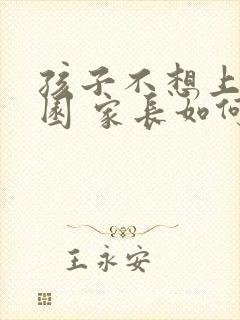 孩子不想上
园 家长如何
王永安